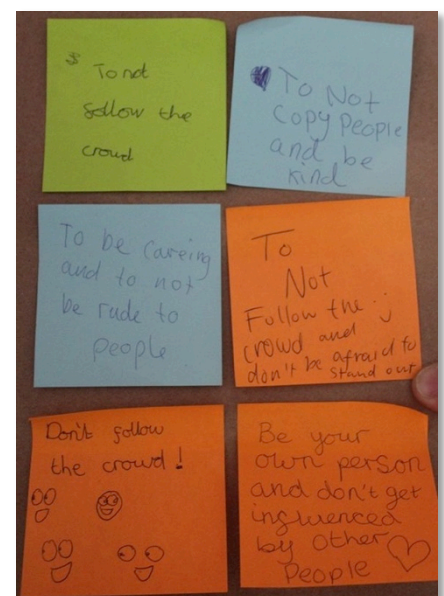 To not
follow the
crowd
To Not
copy People
and be
kind
To be careing
and to not
be rude to
people
To
Not
Follow the
crowd and
don't be afraid to
stand out
Don't follow
the crowd!
Be your
own person
and don't get
influenced
by other
People